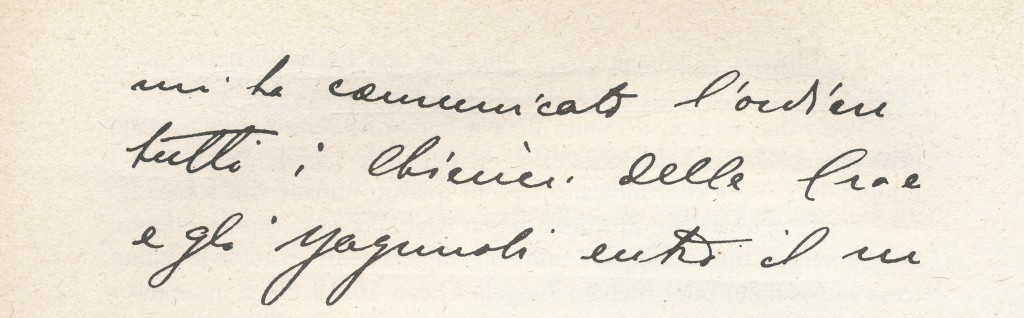 mi ha comunicato l'ordin
tutti i Chierici delle
e gli Spagnuoli entro il